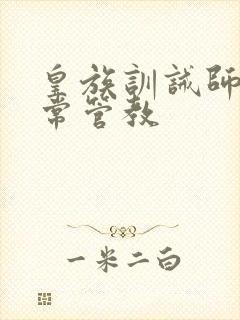 皇族訓誡師
常管教
一米二白